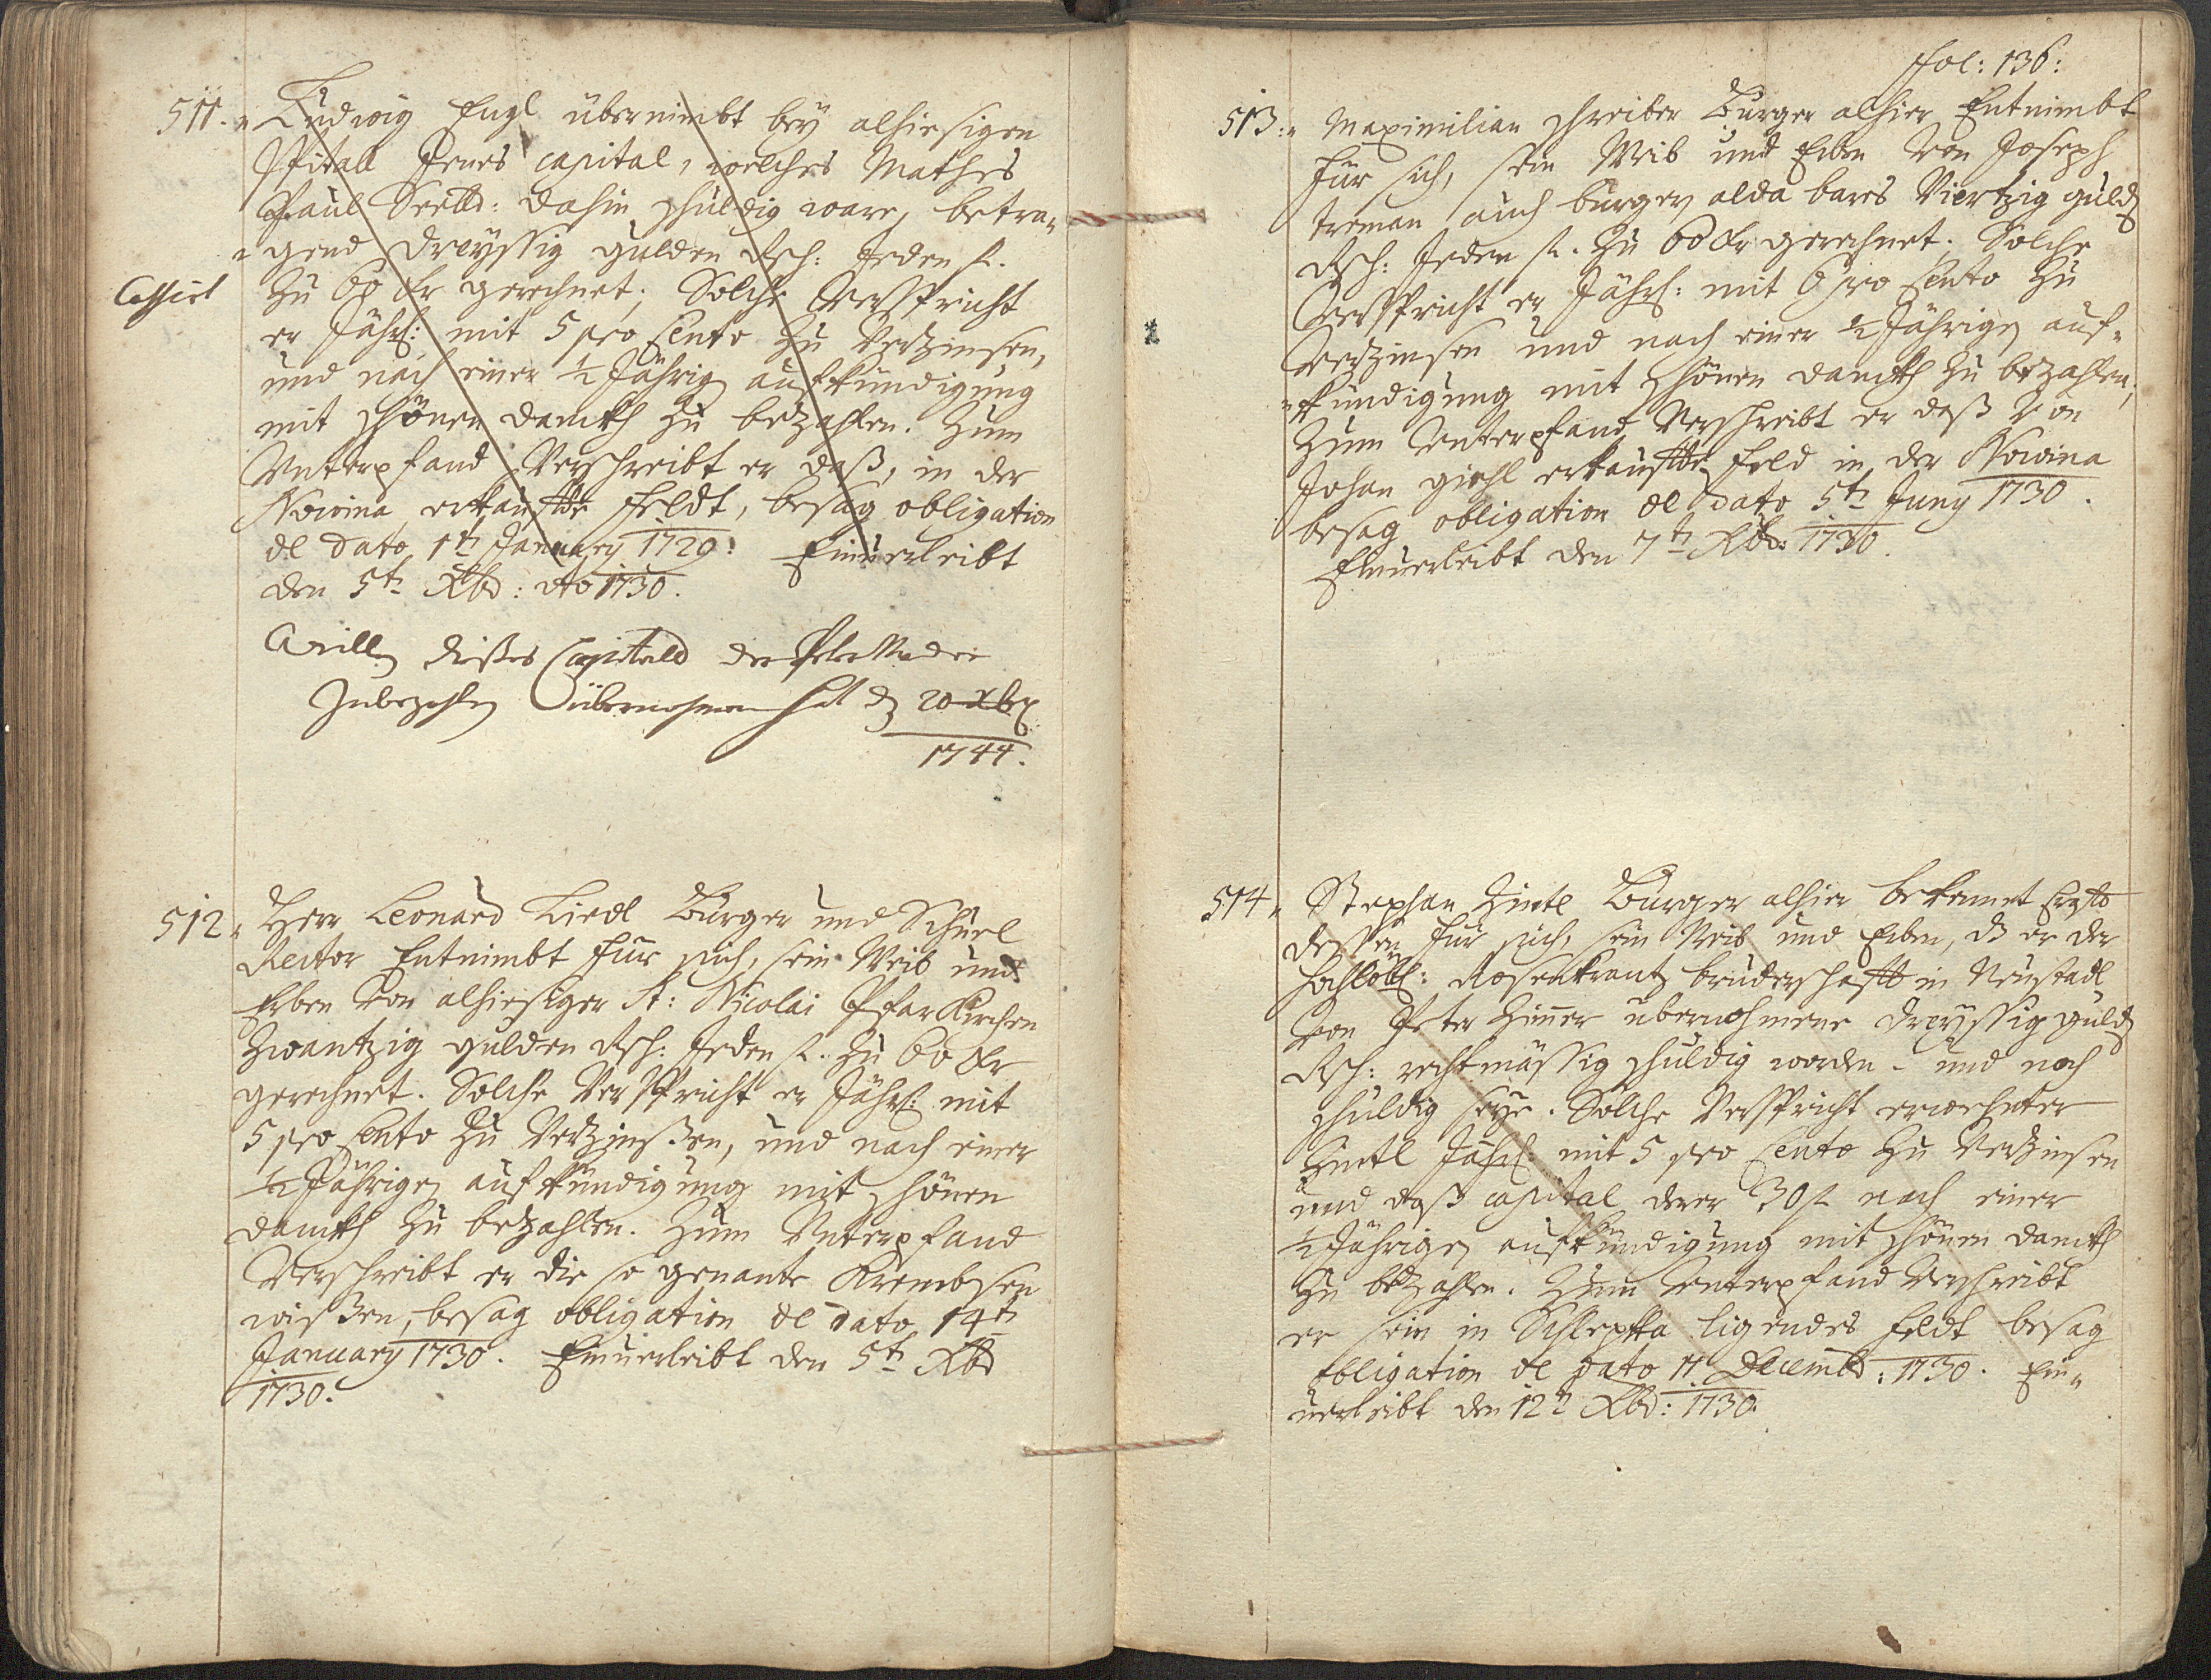 511. Ludwig Engl übernimbt bey alhiesigen
Spitall Jenes capital, welches Mathes
Paul Seelld: dahin schuldig ware, betra-
gend dreyssig gulden Rh: Jeden fl.
Cassiret
zu 60 Kr gerechnet; Solche Verspricht
er Jährl: mit 5 pro Cento zu Verzinsen,
und nach einer 1/2 Jährig aufkündigung
mit schönen danckh zu betzahlen. Zum
Unterpfand Verschreibt er daß, in der
Nowina erkauffte feldt, besag obligation
de dato 1tn January 1729. Einverleibt
den 5tn Xbr: Ao 1730.
Weillen dießes Capitals der Peter
Zubezahlen übernohmen hat d 20 xbr
1744.
512. Herr Leonard Liedl Burger und Schuel
Rector Entnimbt für sich, sein Weib und
Erben von alhiesiger St: Nicolai PfarKirchen
Zwantzig gulden Rh: Jeden fl. zu 60 Kr
gerechnet. Solche Verspricht er Jährl: mit
5 pro Cento zu Verzinßen, und nach einer
1/2 Jährigen aufkündigung mit schönen
danckh zu betzahlen. Zum Unterpfand
Verschreibt er die so genante Krembsen
wißen, besag obligation de dato 14tn
January 1730. Einverleibt den 5tn Xbr
1730.
Fol: 136:
513. Maximilian Schreiber Burger alhier Entnimbt
für sich, sein Weib und Erben Von Joseph
treman auch burger alda bares Viertzig guld
Rh: Jeden fl. zu 60 Kr gerechnet. Solche
Verspricht er Jährl: mit 6 pro Cento zu
Verzinsen und nach einer 1/2 Jährigen auf-
kündigung mit schönen danckh zu bezahlen;
Zum Unterpfand Verschreibt er daß von
Johan giehl erkauffte feld in der Nowina
besag obligation de dato 5tn Juny 1730.
Einverleibt den 7tn Xbr: 1730.
514. Stephan Zintl Burger alhier bekennet Crafft
dessen für sich, sein Weib und Erben, d er der
hochlöbl: Rosenkrantz bruderschafft in Neustadl
von Peter Zinner übernohmene dreyssig guld
Rh: rechtmässig schuldig worden - und noch
schuldig seye. Solche Verspricht erwehnter
Zintl Jährl: mit 5 pro Cento zu Verzinsen
und daß capital derer 30 fl nach einer
1/2 Jährigen aufkündigung mit schönen danckh
zu bezahlen. Zum Unterpfand Verschreibt
er sein in Schleptka ligendes feldt besag
obligation de dato 11. Decembr: 1730. Ein-
verleibt den 12tn Xbr: 1730.